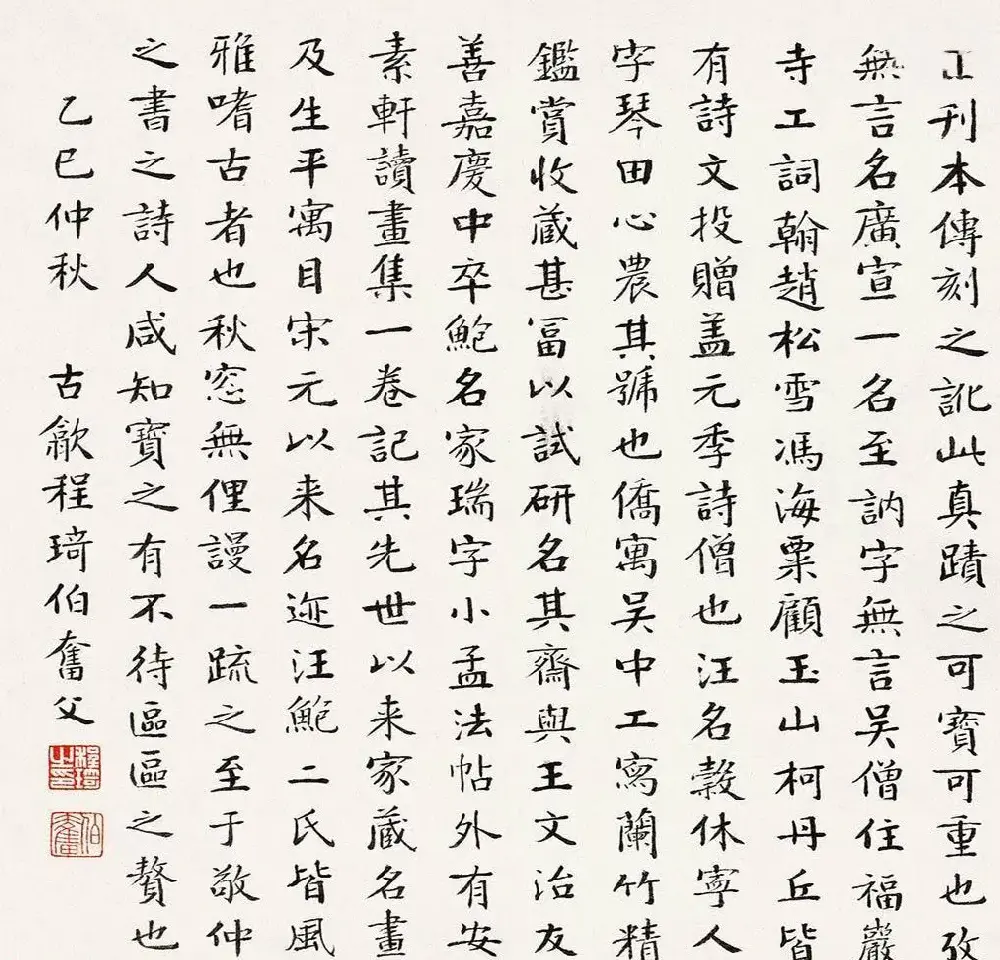 正刊本傳刻之訛此真蹟之可寶可重也攷
無言名廣宣一名至訥字無言吴僧住福巖
寺工詞翰趙松雪馮海粟顧玉山柯丹丘皆
有詩文投贈盖元季詩僧也汪名穀休寧人
字琴田心農其號也僑寓吴中工寫蘭竹精
鑑賞收蔵甚冨以試研名其齋與王文治友
善嘉慶中卒鮑名家瑞字小孟法帖外有安
素軒讀畫集一卷記其先世以来家蔵名畫
及生平寓目宋元以来名迹汪鮑二氏皆風
雅嗜古者也秋窓無俚謾一疏之至于敬仲
之書之詩人咸知寶之有不待區區之贅也
乙巳仲秋 古歙程琦伯奮父
程琦之印
伯奮